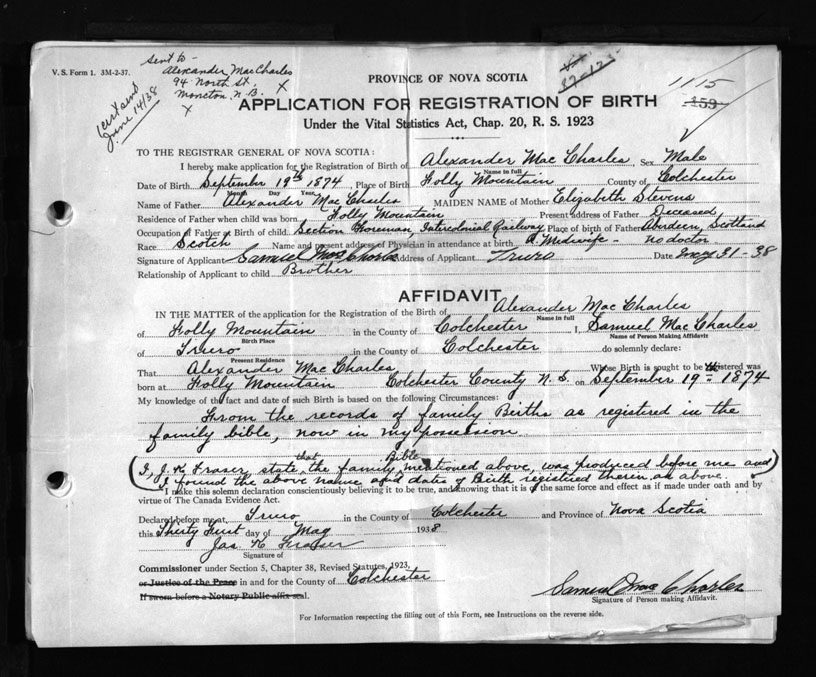 V. S. Form 1. 3M-2-37.
sent to -
Alexander MacCharles
94 North St,
Moncton N. B.
X
X
June 14/38
PROVINCE OF NOVA SCOTIA
1115
159
APPLICATION FOR REGISTRATION OF BIRTH
Under the Vital Statistics Act, Chap. 20, R. S. 1923
TO THE REGISTRAR GENERAL OF NOVA SCOTIA:
I hereby make application for the Registration of Birth of Alexander Mac Charles, Sex Male
Name in full
Date of Birth September 19th 1874, Place of Birth Folly Mountain County of Colchester
Month Day Year
Name of Father Alexander Mac Charles MAIDEN NAME of Mother Elizabeth Stevens
Residence of Father when child was born Folly Mountain Present address of Father Deceased
Occupation of Father at Birth of child Section Foreman, Intercolonial Railway Place of birth of Father Aberdeen, Scotland
Race Scotch Name and present address of Physician in attendance at birth A Midwife - no doctor.
Signature of Applicant Samuel Mac Charles Address of Applicant Truro Date May 31 - 38
Relationship of Applicant to child Brother
AFFIDAVIT
IN THE MATTER of the application for the Registration of the Birth of Alexander Mac Charles
Name in full
of Folly Mountain in the County of Colchester I, Samuel Mac Charles
Birth Place Name of Person Making Affidavit
of Truro in the County of Colchester do solemnly declare:
Present Residence
That Alexander Mac Charles Whose Birth is sought to be registered was
born at Folly Mountain Colchester County N. S. on September 19th 1874
My knowledge of the fact and date of such Birth is based on the following Circumstances:
From the records of family Births as registered in the
family bible, now in my possession
(I, J. K Fraser, state that the family Bible mentioned above, was produced before me and
I found the above name and dates of Birth registered therein as above.)
I make this solemn declaration conscientiously believing it to be true, and knowing that it is of the same force and effect as if made under oath and by
virtue of The Canada Evidence Act.
Declared before me at Truro in the County of Colchester and Province of Nova Scotia
this Thirty First day of May 1938
Jas K Fraser
Signature of
Commissioner under Section 5, Chapter 38, Revised Statutes, 1923,
or Justice of the Peace in and for the County of Colchester
If sworn before a Notary Public affix seal.
Samuel Mac Charles
Signature of Person making Affidavit.
For Information respecting the filling out of this Form, see Instructions on the reverse side.